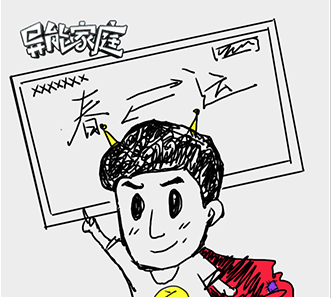 异能家庭
XXXXXXX
春运